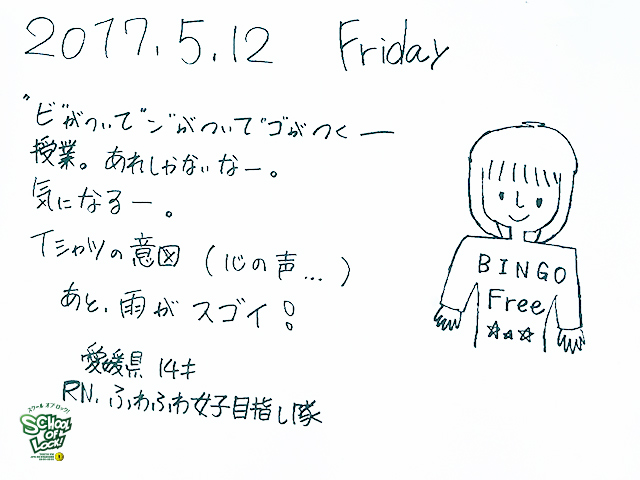 2017.5.12 Friday
"ビ"がついて"ン"がついて"ゴ"がつくー
授業。あれしかないなー。
気になるー。
Tシャツの意図（心の声…）
あと、雨がスゴイ!
愛媛県 14才
RN.ふわふわ女子目指し隊
BINGO
Free
スクール オブ ロック!
SCHOOL
OF
LOCK!